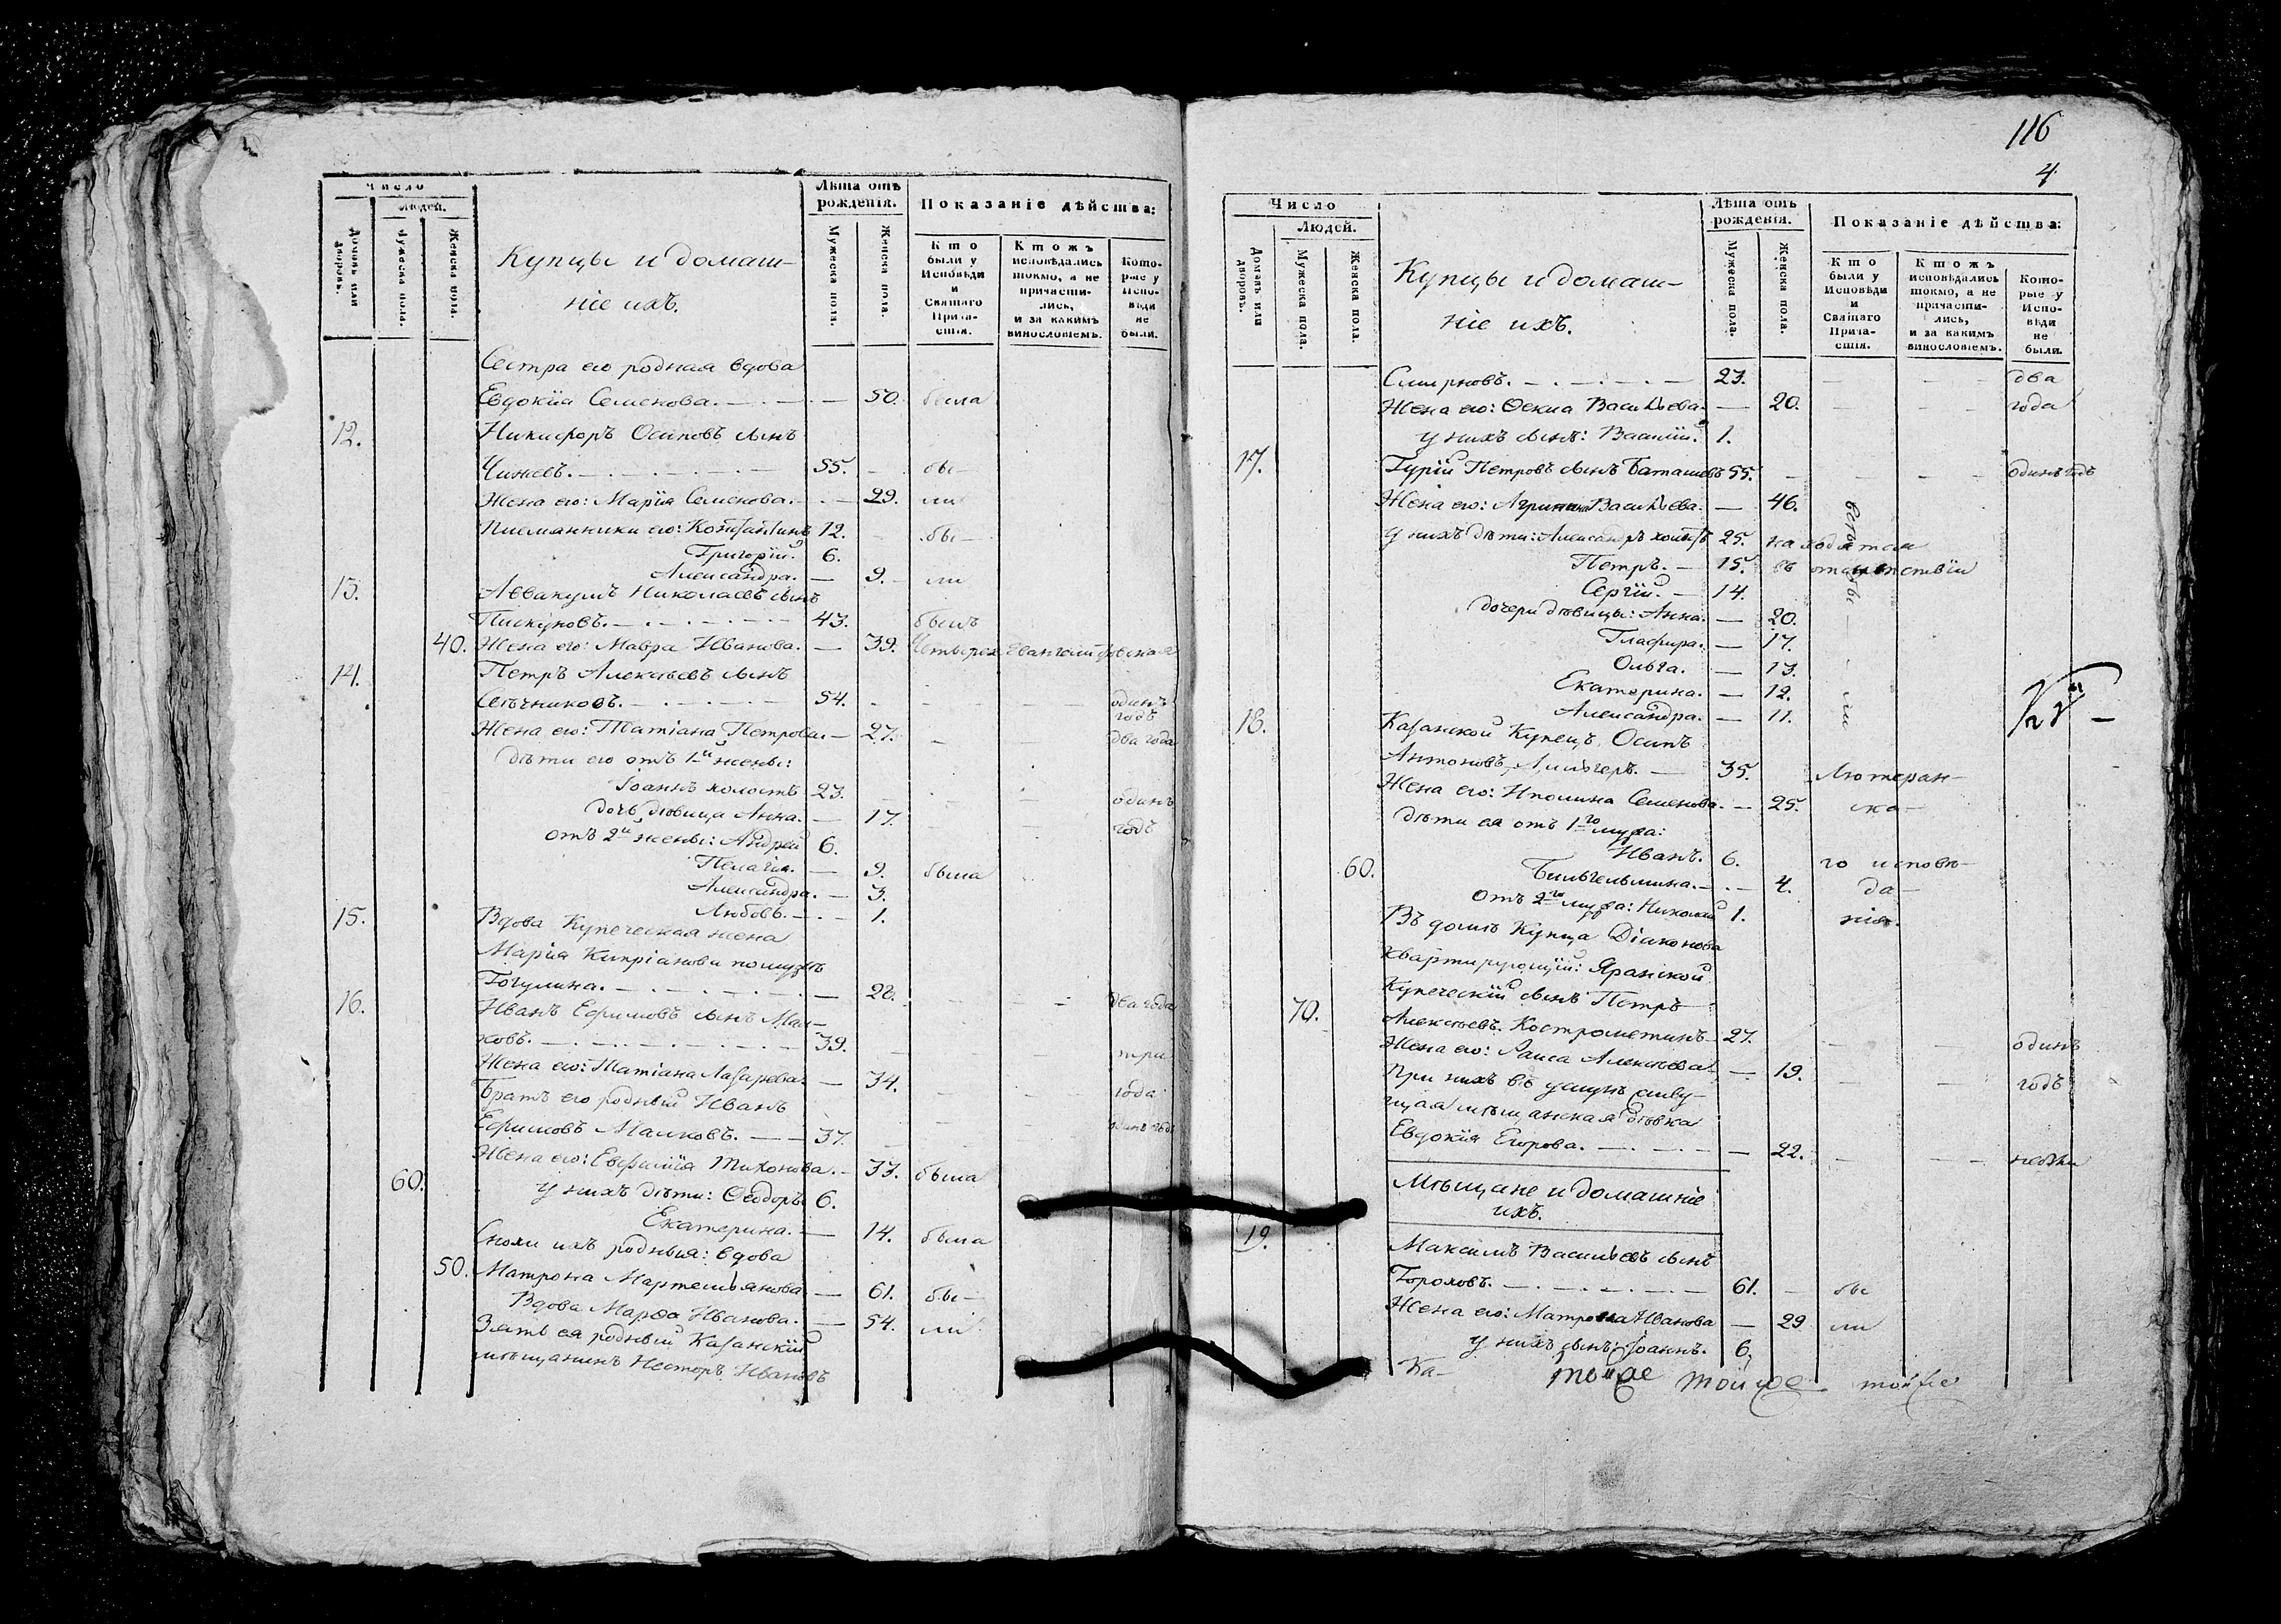 Число
Людей.
Домовъ или дворовъ.
Мужеска пола.
Женска пола.
Купцы и домаш-
ніе ихъ.
Лѣта отъ рожденія.
Мужеска пола.
Женска пола.
Показаніе дѣйства:
Кто были у Исповѣди и Святаго Прича-стія.
Ктожъ исповѣдались токмо, а не причасти-лись, и за какимъ винословіемъ.
Кото-рые у Испо-вѣди не были.
Сестра его родная вдова
Евдокія Семенова. — 50. была
12. Никифоръ Осиповъ сынъ
Чижевъ. — 55. — бы-
Жена его: Марія Семенова. — 29. ли
Племянники его: Константинъ 12. — бы-
Григорій. 6.
Александра. — 9. — ли
13. Аввакумъ Николаевъ сынъ
Пискуновъ. — 43. былъ
40. Жена его: Мавра Иванова. — 39.
14. Петръ Алексѣевъ сынъ
Сѣчниковъ. — 54. — — одинъ годъ
Жена его: Татіана Петрова. — 27. — — два года
Дѣти его отъ 1й жены:
Іоаннъ холостъ 23. — — одинъ
дочь дѣвица Анна. — 17. — годъ
отъ 2й жены: Андрей 6.
Пелагія. — 9. была
Александра. — 3.
Любовь. — 1.
15. Вдова Купеческая жена
Марія Кипріанова по мужѣ
Гогулина. — 28. — — два года
16. Иванъ Ефимовъ сынъ Мал-
ковъ. — 39. — — три
Жена его: Татіана Лазарева. — 34. — — года
Братъ его родный Иванъ
Ефимовъ Малковъ. — 37. — — одинъ годъ
Жена его: Евфимія Тихонова. — 33. была
60. У нихъ дѣти: Ѳеодоръ 6.
Екатерина. — 14. была
Снохи ихъ родныя: вдова
50. Матрона Мартемьянова — 61. бы-
Вдова Марѳа Иванова. — 54. ли
Зять ея родный Казанскій
мѣщанинъ Несторъ Ивановъ
116
4
Число
Людей.
Домовъ или дворовъ.
Мужеска пола.
Женска пола.
Купцы и домаш-
ніе ихъ.
Лѣта отъ рожденія.
Мужеска пола.
Женска пола.
Показаніе дѣйства:
Кто были у Исповѣди и Святаго Прича-стія.
Ктожъ исповѣдались токмо, а не причасти-лись, и за какимъ винословіемъ.
Кото-рые у Испо-вѣди не были.
Смирновъ. — 23. — — два
Жена его: Ѳекла Васильева. — 20. — — года
у нихъ сынъ: Василій. 1.
17. Гурій Петровъ сынъ Баташевъ 55. — — одинъ годъ
Жена его: Агрипина Васильева. — 46.
У нихъ дѣти: Александръ холостъ 25. находятся
Петръ. — 15. въ отсутствіи
Сергій. — 14.
дочери дѣвицы: Анна. — 20.
Глафира. — 17.
Ольга. — 13.
Екатерина. — 12.
Александра. — 11. ли
18. Казанской Купецъ Осипъ
Антоновъ — 35. Лютеран-
Жена его: Семенова. — 25. ска-
Дѣти ея отъ 1го мужа:
Иванъ. 6. го исповѣ-
60. Вильгельмина. — 4. да-
Отъ 2го мужа: Николай 1. нія.
Въ домѣ Купца Діаконова
квартирующій: Яранской
Купеческій сынъ Петръ
70. Алексѣевъ Костромитинъ 27. — — одинъ
Жена его: Раиса Алексѣева — 19. — — годъ
При нихъ въ услуж. живу-
щая мѣщанская дѣвка
Евдокія Егорова. — 22. — —
Мѣщане и домашніе
ихъ.
19. Максимъ Васильевъ сынъ
Гороховъ. — 61. — бы
Жена его: Матрона Иванова — 29 ли
у нихъ сынъ: Іоаннъ. 6.
Ка- тойже тойже тойже